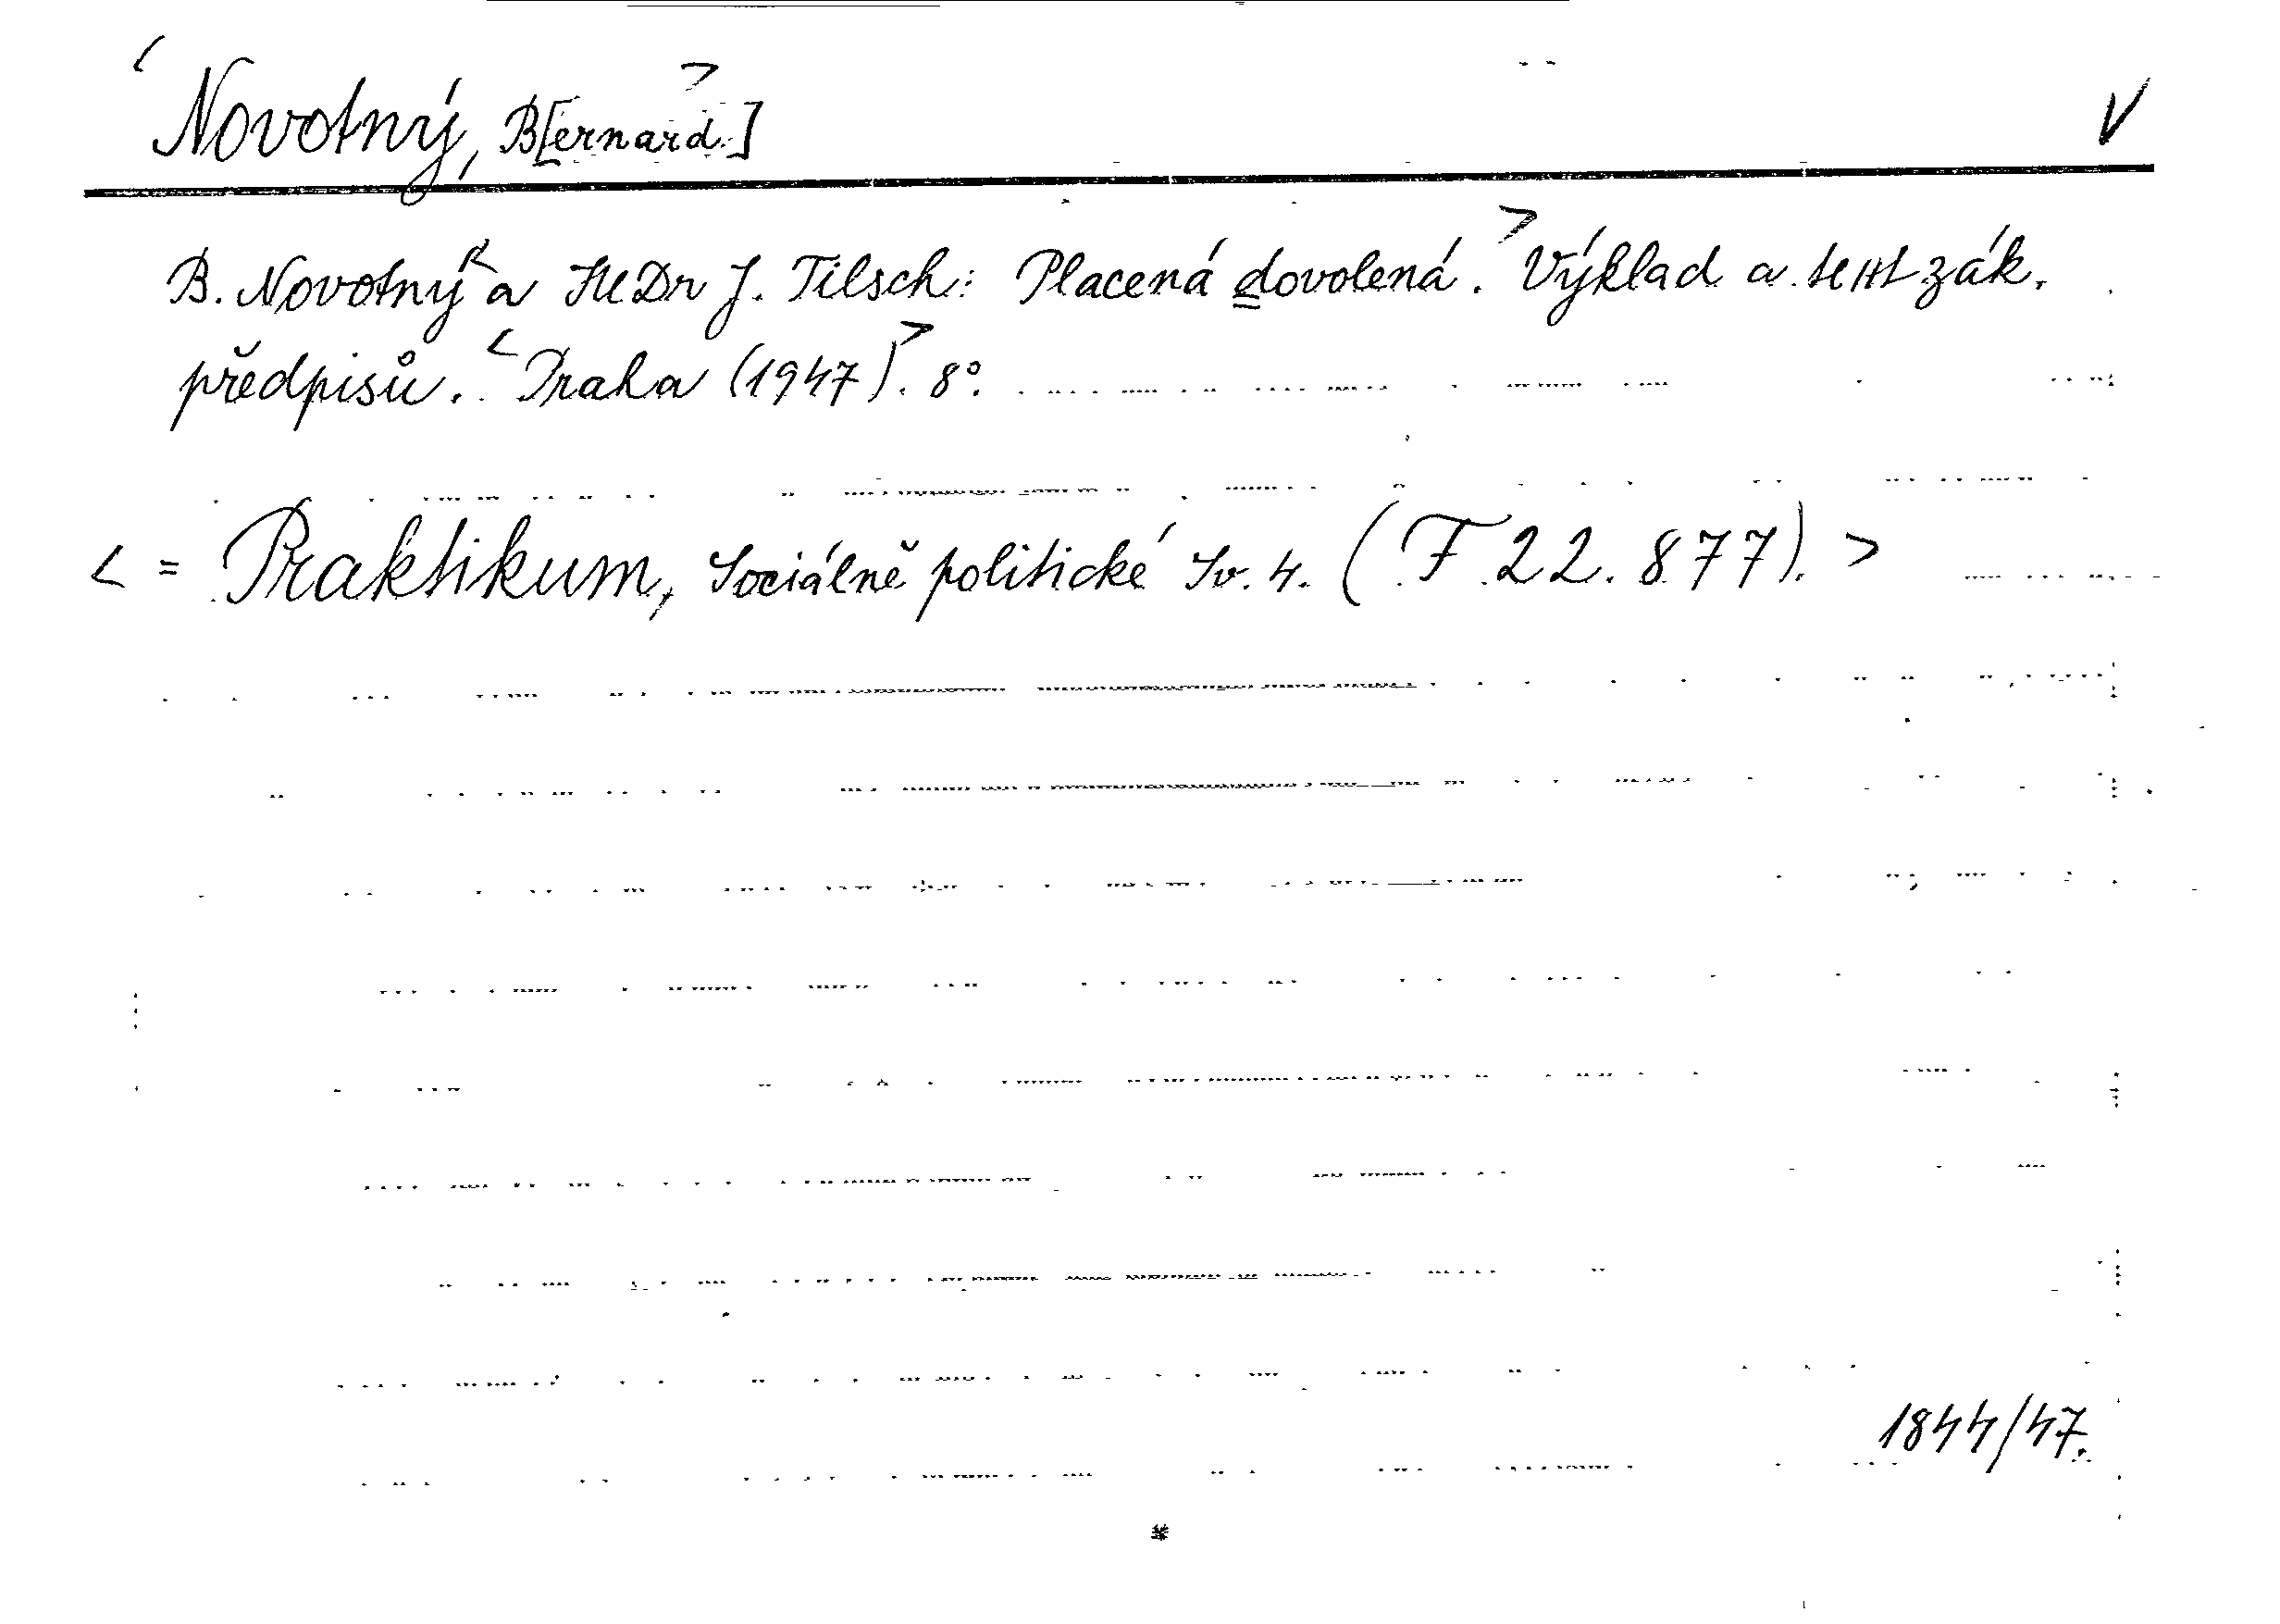 <Novotný, B[ernard.]> V
B. Novotný a JUDr J. Tilsch: Placená dovolená.> Výklad a text zák.
předpisů. <Praha (1947)>. 8°.
< = Praktikum, Sociálně politické Sv. 4. (F 22.877). >
1844/47.
*